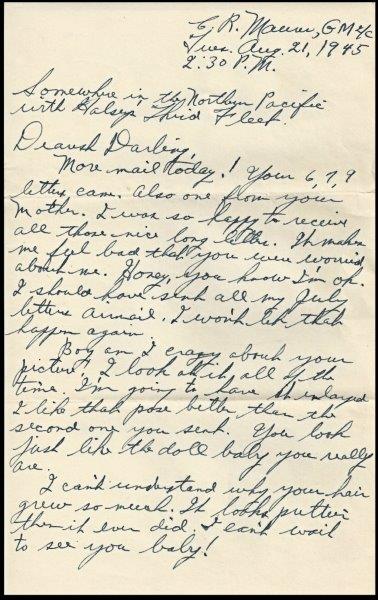 C. R. Maurer, GM 2/c
Tues. Aug. 21, 1945
2:30 P.M.
Somewhere in the Northern Pacific
with Halsey's Third Fleet
Dearest Darling,
More mail today! Your 6, 7, 9
letters came. Also one from your
Mother. I was so happy to receive
all those nice long letters. It makes
me feel bad that you were worried
about me. Honey, you know I'm ok.
I should have sent all my July
letters airmail. I won't let that
happen again.
Boy am I crazy about your
picture! I look at it, all of the
time. I'm going to have it enlarged
I like that pose better than the
second one you sent. You look
just like the doll baby you really
are.
I can't understand why your hair
grew so much. It looks prettier
than it ever did. I can't wait
to see you baby!